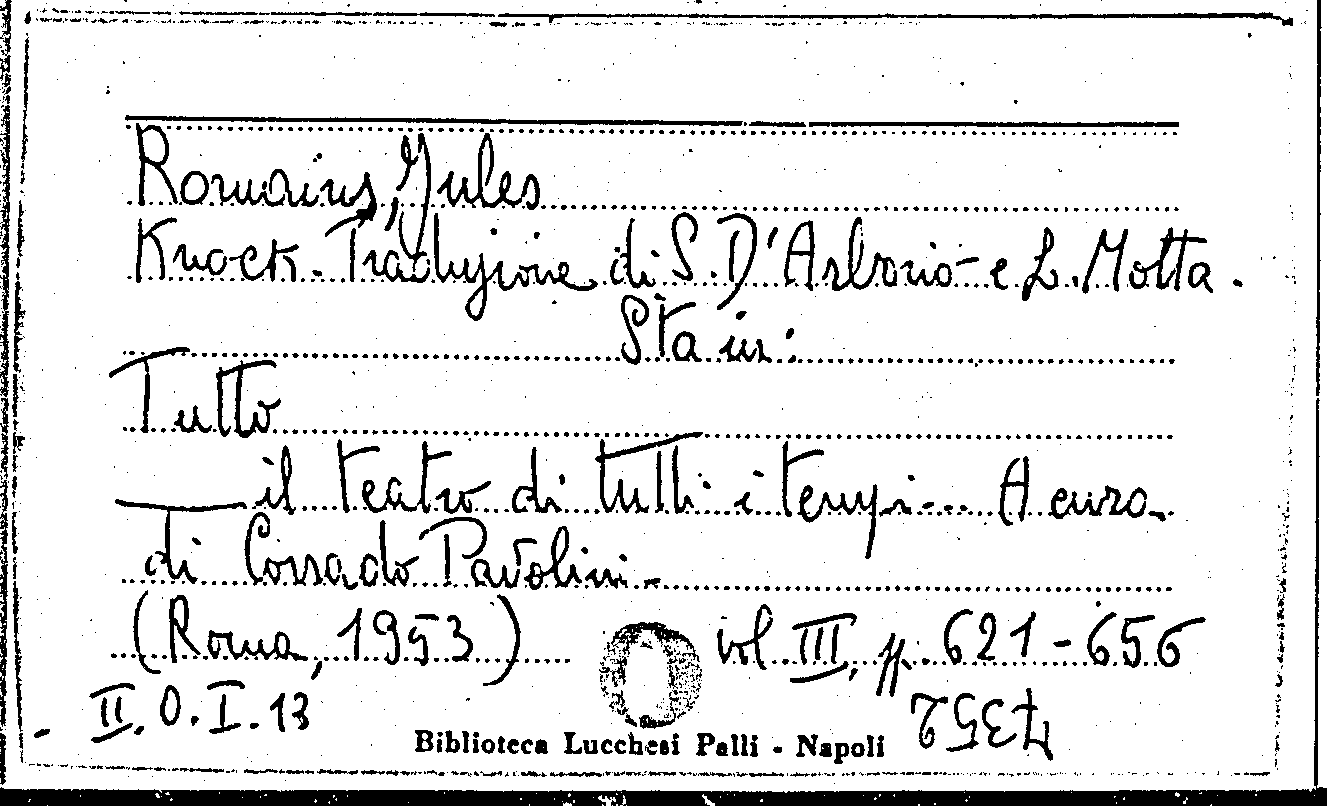 Romains, Jules
Knock. Traduzione di S. D'Arborio e L. Motta.
Sta in:
Tutto
il teatro di tutti i tempi... A cura
di Corrado Pavolini.
(Roma, 1953) vol III, pp. 621-656
II. O. I. 13
Biblioteca Lucchesi Palli - Napoli